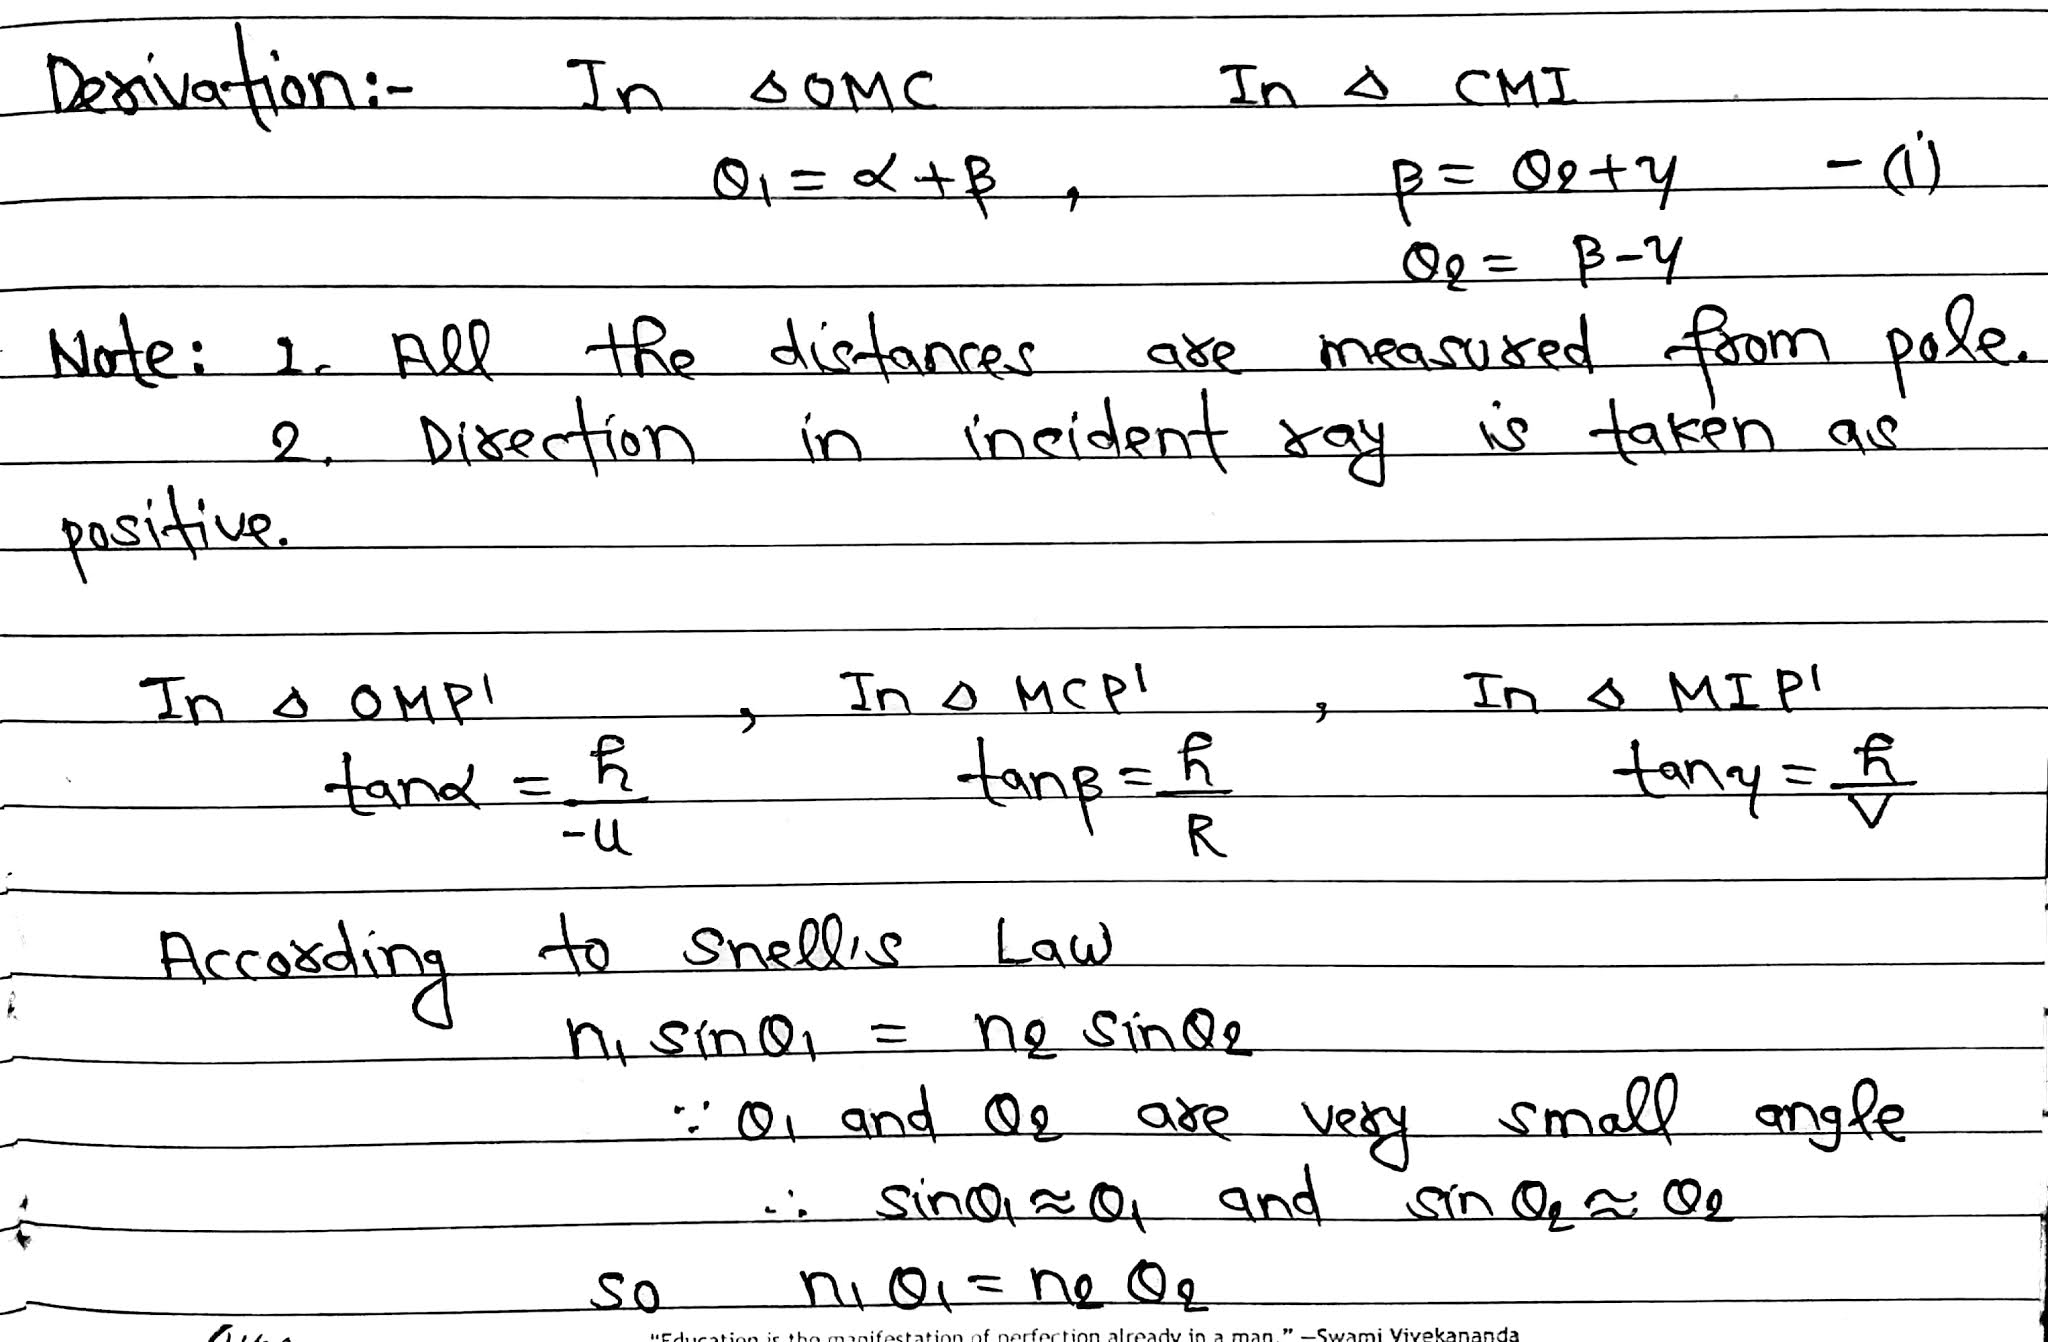 Derivation:- In △OMC In △ CMI
θ1 = α + β , β = θ2 + γ - (i)
θ2 = β - γ
Note: 1. All the distances are measured from pole.
2. Direction in incident ray is taken as
positive.
In △ OMP' , In △ MCP' , In △ MIP'
tanα = h/-u tanβ = h/R tanγ = h/V
According to Snell's Law
n1 sinθ1 = n2 sinθ2
∵ θ1 and θ2 are very small angle
∴ sinθ1 ≈ θ1 and sin θ2 ≈ θ2
so n1 θ1 = n2 θ2
"Education is the manifestation of perfection already in a man." —Swami Vivekananda